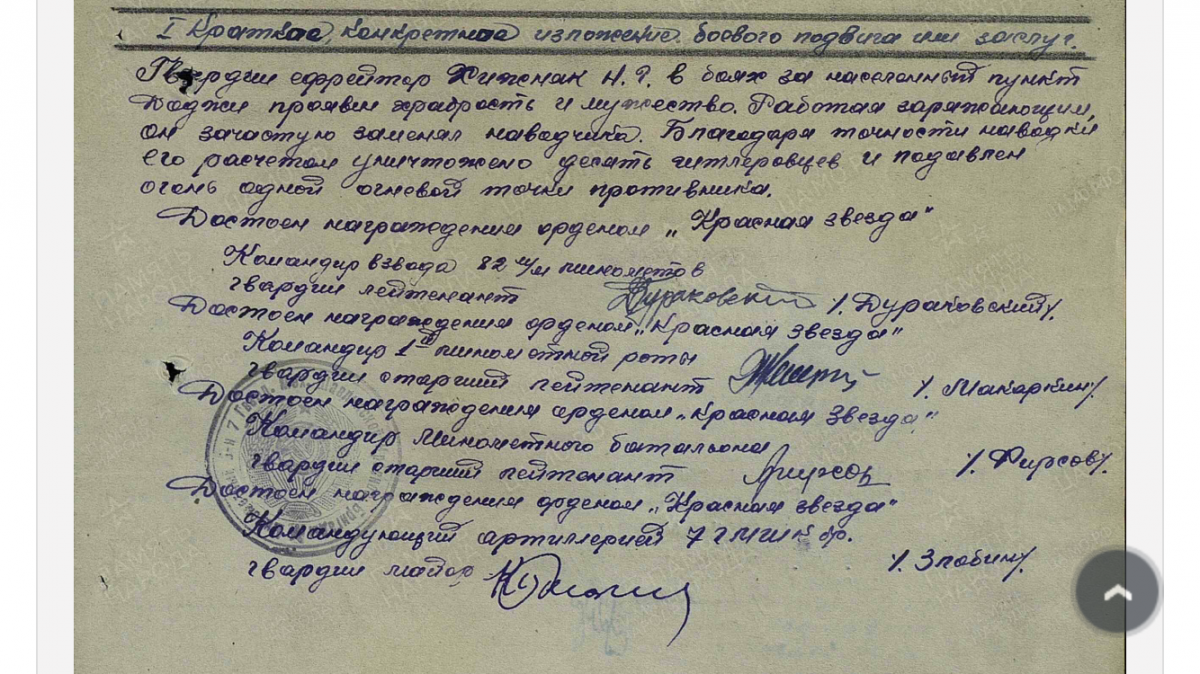 I Краткое, конкретное изложение боевого подвига или заслуг.
Гвардии ефрейтор Хижнак Н. Г. в боях за населенный пункт
проявил храбрость и мужество. Работая заряжающим,
он зачастую заменял наводчика. Благодаря точности наводки
его расчетом уничтожено десать гитлеровцев и подавлен
огонь одной огневой точки противника.
Достоен награждения орденом „Красная звезда"
Командир взвода 82 м/м минометов
гвардии лейтенант /. Дураковский/.
Достоен награждения орденом „Красная звезда"
Командир 1й минометной роты
гвардии старший лейтенант /. Макаркин/
Достоен награждения орденом „Красная Звезда"
Командир Минометного батальона
гвардии старший лейтенант Фирсов /. Фирсов/.
Достоен награждения орденом „Красная звезда"
Командующий артиллерией 7 ГМШК бр.
гвардии майор /. Злобин/.